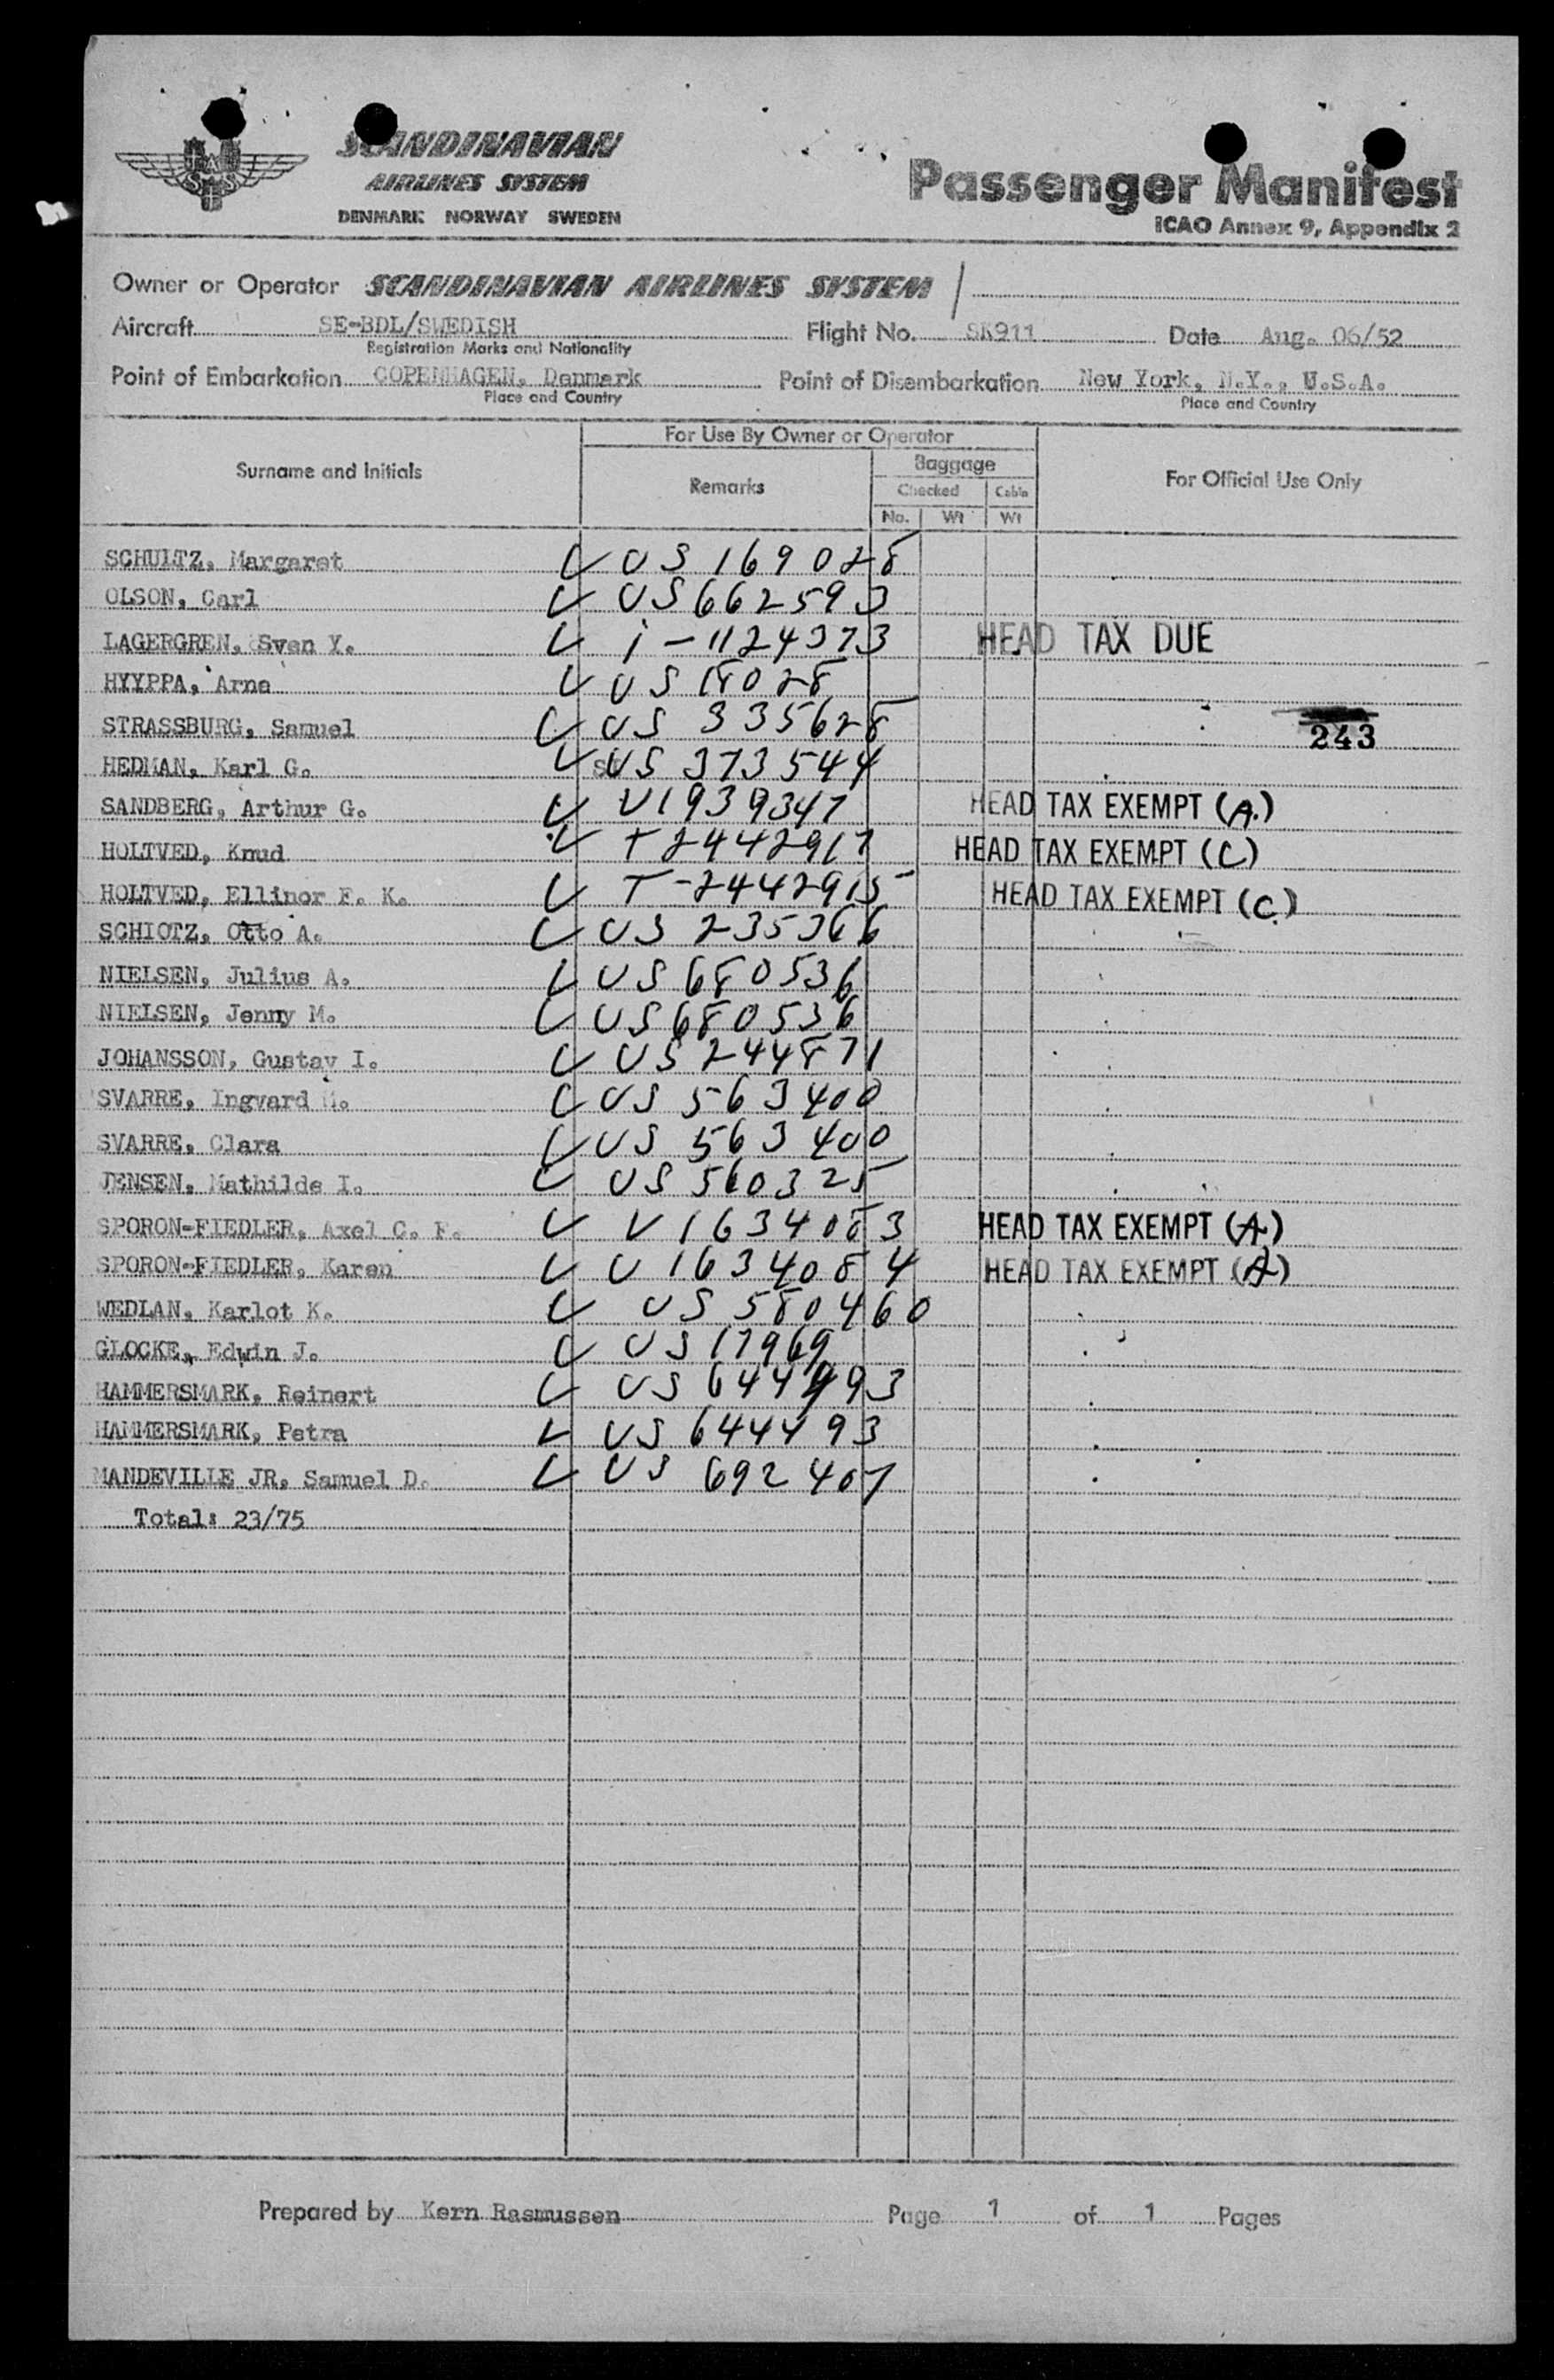 SAS
SCANDINAVIAN
AIRLINES SYSTEM
DENMARK NORWAY SWEDEN
Passenger Manifest
ICAO Annex 9, Appendix 2
Owner or Operator SCANDINAVIAN AIRLINES SYSTEM /
Aircraft SE-BDL/SWEDISH Flight No. SK911 Date Aug. 06/52
Registration Marks and Nationality
Point of Embarkation COPENHAGEN, Denmark Point of Disembarkation New York, N.Y., U.S.A.
Place and Country Place and Country
For Use By Owner or Operator
Surname and Initials Remarks Baggage For Official Use Only
Checked Cabin
No. Wt Wt
SCHULTZ, Margaret US 169028
OLSON, Carl US 662593
LAGERGREN, Sven Y. i-1124373 HEAD TAX DUE
HYYPPA, Arne US 18028
STRASSBURG, Samuel US 335628 243
HEDMAN, Karl G. US 373544
SANDBERG, Arthur G. V1939347 HEAD TAX EXEMPT (A.)
HOLTVED, Knud T2442917 HEAD TAX EXEMPT (C)
HOLTVED, Ellinor F. K. T-2442915 HEAD TAX EXEMPT (C)
SCHIOTZ, Otto A. US 235366
NIELSEN, Julius A. US 680536
NIELSEN, Jenny M. US 680536
JOHANSSON, Gustav I. US 244871
SVARRE, Ingvard US 563400
SVARRE, Clara US 563400
JENSEN, Mathilde I. US 560325
SPORON-FIEDLER, Axel C. F. V 1634083 HEAD TAX EXEMPT (A)
SPORON-FIEDLER, Karen V 1634084 HEAD TAX EXEMPT (A)
WEDLAN, Karlot K. US 580460
GLOCKE, Edwin J. US 17969
HAMMERSMARK, Reinert US 644493
HAMMERSMARK, Petra US 644493
MANDEVILLE JR, Samuel D. US 692407
Total: 23/75
Prepared by Kern Rasmussen Page 1 of 1 Pages